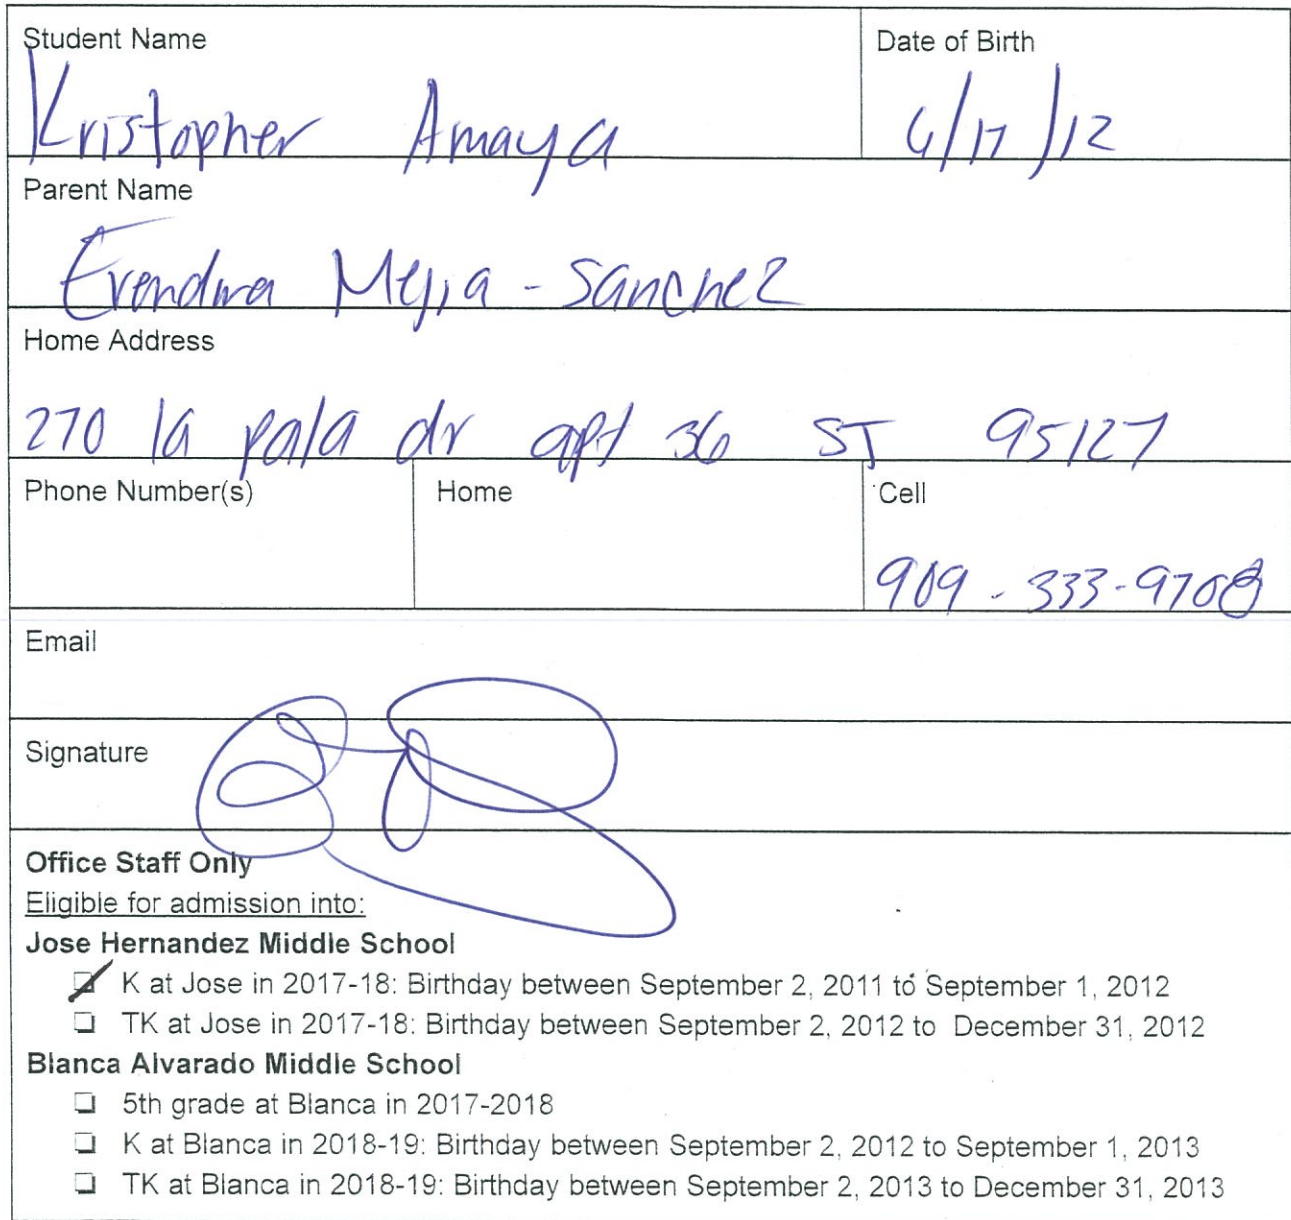 Student Name
Date of Birth
Kristopher Amaya
6/17/12
Parent Name
Erendira Mejia - Sanchez
Home Address
270 la pala dr apt 36 SJ 95127
Phone Number(s)
Home
Cell
909 - 333-9708
Email
Signature
Office Staff Only
Eligible for admission into:
Jose Hernandez Middle School
K at Jose in 2017-18: Birthday between September 2, 2011 to September 1, 2012
TK at Jose in 2017-18: Birthday between September 2, 2012 to December 31, 2012
Blanca Alvarado Middle School
5th grade at Blanca in 2017-2018
K at Blanca in 2018-19: Birthday between September 2, 2012 to September 1, 2013
TK at Blanca in 2018-19: Birthday between September 2, 2013 to December 31, 2013